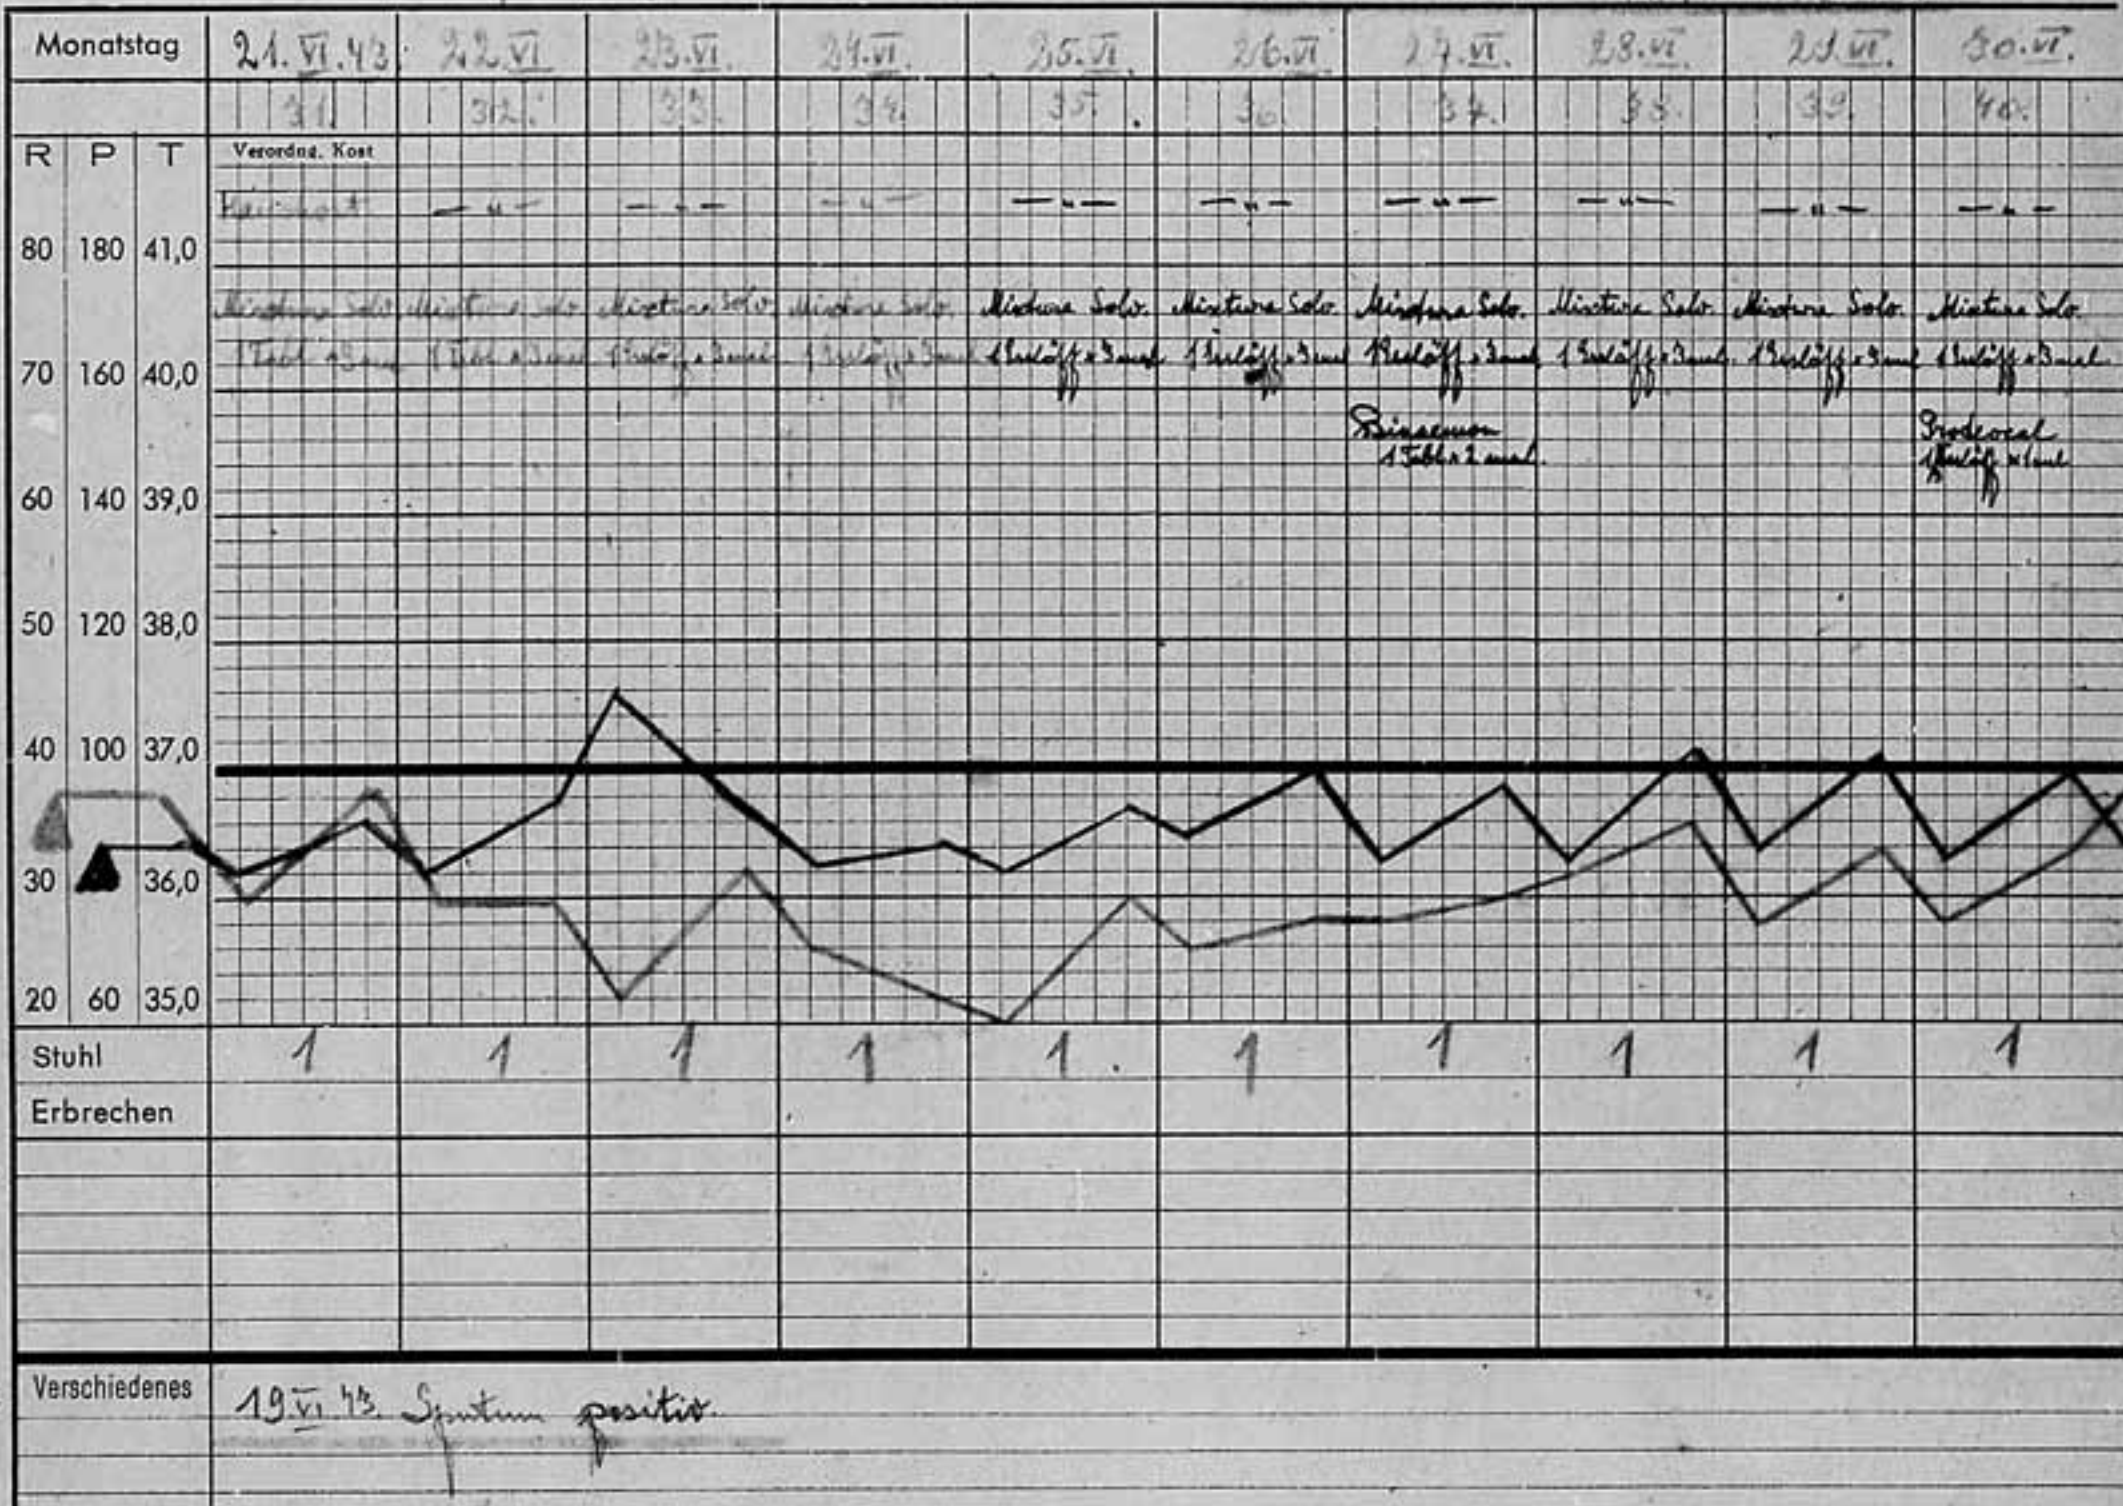 Monatstag 21.VI.43 22.VI 23.VI. 24.VI. 25.VI. 26.VI. 27.VI. 28.VI. 29.VI. 30.VI.
31. 32. 33. 34. 35. 36 37. 38. 39. 40.
R P T Verordng. Kost
— " — — " — — " — — " — — " — — " — — " — — " — — " —
80 180 41,0
Mixtura Solv Mixtura Solv Mixtura Solv. Mixtura Solv. Mixtura Solv. Mixtura Solv. Mixtura Solv. Mixtura Solv. Mixtura Solv. Mixtura Solv.
1 Tabl x 3 mal 1 Tabl x 3 mal 1 Esslöff x 3 mal 1 Esslöff x 3 mal 1 Esslöff x 3 mal 1 Esslöff x 3 mal 1 Esslöff x 3 mal 1 Esslöff x 3 mal. 1 Esslöff x 3 mal 1 Esslöff x 3 mal.
70 160 40,0
1 Tabl x 2 mal.
60 140 39,0
50 120 38,0
40 100 37,0
30 36,0
20 60 35,0
Stuhl 1 1 1 1 1 1 1 1 1 1
Erbrechen
Verschiedenes 19.VI.43. Sputum positiv.